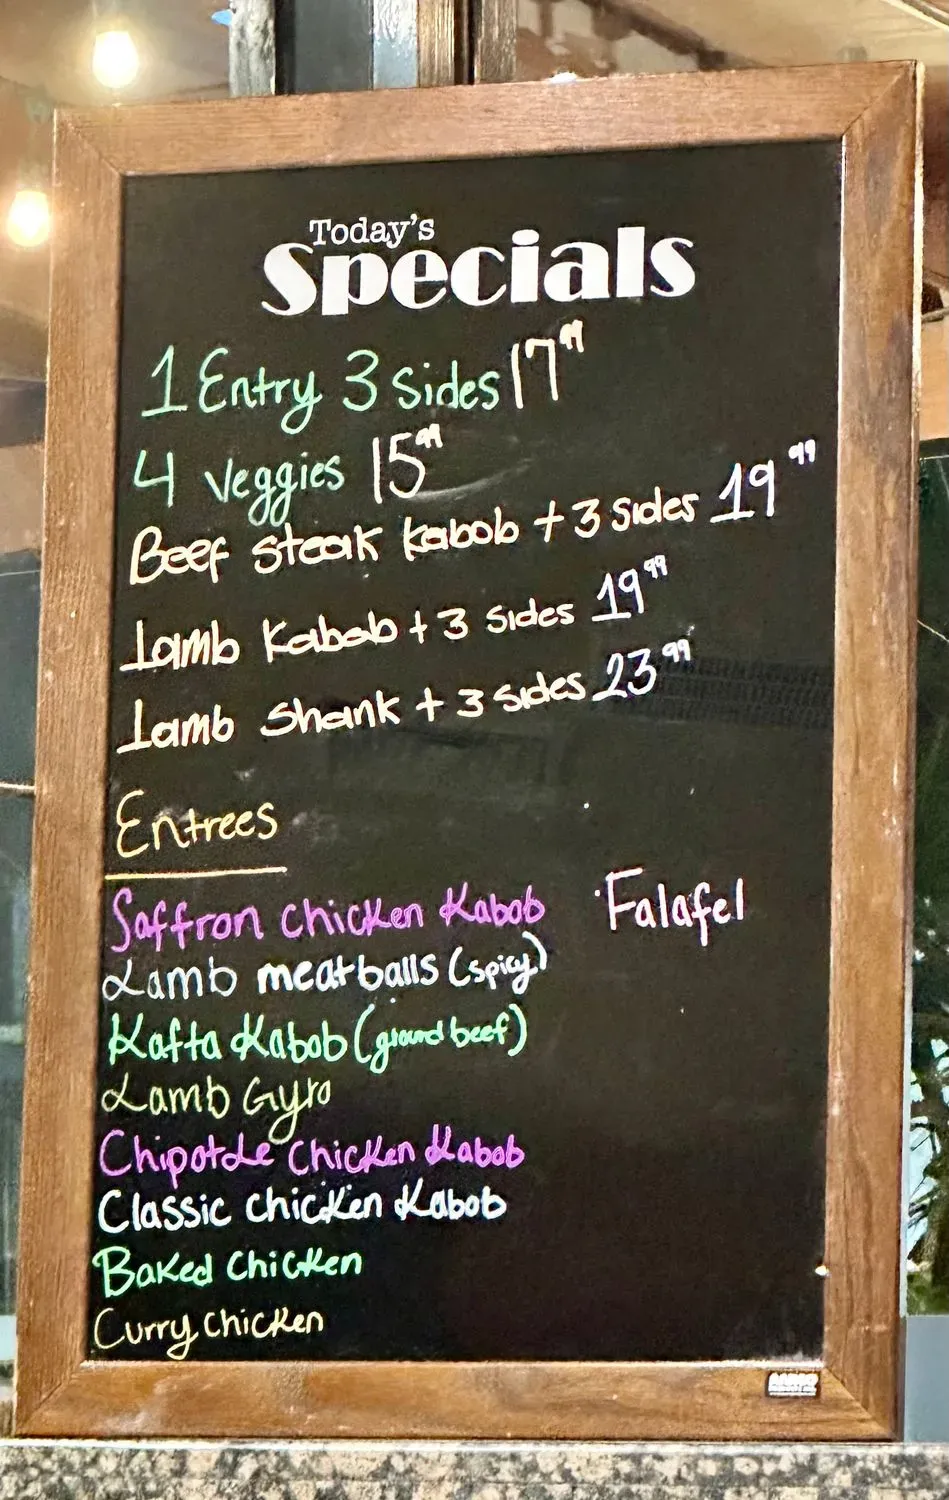 Today's
Specials
1 Entry 3 Sides 17⁹⁹
4 veggies 15⁹⁹
Beef steak kabob + 3 sides 19⁹⁹
Lamb Kabab + 3 sides 19⁹⁹
Lamb Shank + 3 sides 23⁹⁹
Entrees
Saffron chicken Kabob
Falafel
Lamb meatballs (spicy)
Kafta Kabob (ground beef)
Lamb Gyro
Chipotle chicken Kabob
Classic chicken Kabob
Baked chicken
Curry chicken